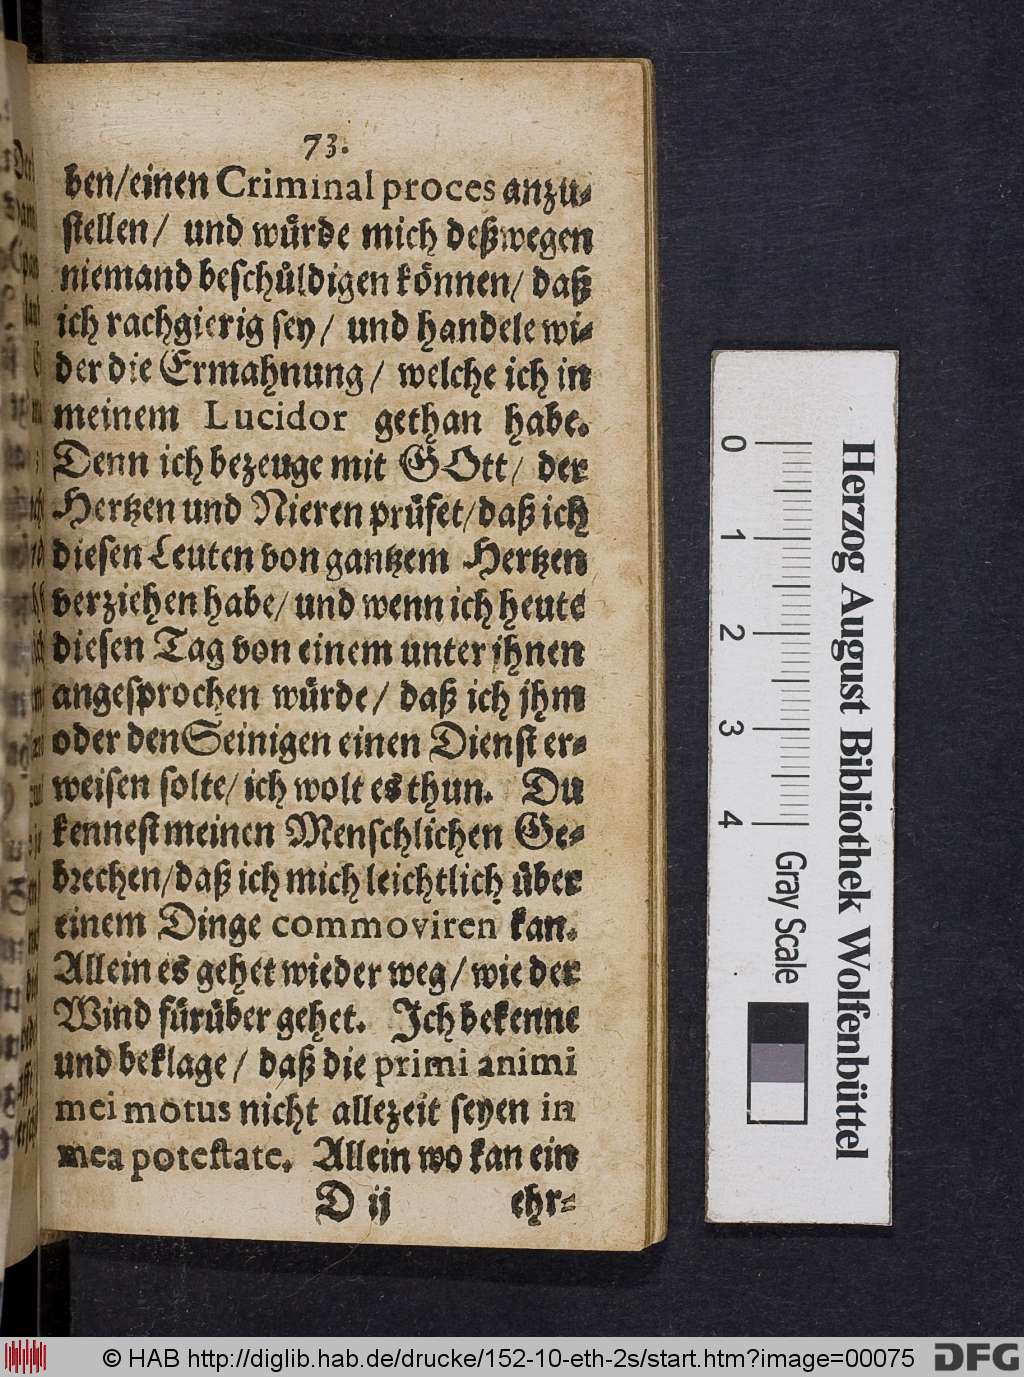 73.
ben/einen Criminal proces anzu-
stellen/ und würde mich deßwegen
niemand beschüldigen können/ daß
ich rachgierig sey/ und handele wi-
der die Ermahnung/ welche ich in
meinem Lucidor gethan habe.
Denn ich bezeuge mit GOtt/ der
Hertzen und Nieren prüfet/daß ich
diesen Leuten von gantzem Hertzen
verziehen habe/ und wenn ich heute
diesen Tag von einem unter jhnen
angesprochen würde/ daß ich jhm
oder den Seinigen einen Dienst er-
weisen solte/ ich wolt es thun. Du
kennest meinen Menschlichen Ge-
brechen/daß ich mich leichtlich über
einem Dinge commoviren kan.
Allein es gehet wieder weg/ wie der
Wind fürüber gehet. Ich bekenne
und beklage/ daß die primi animi
mei motus nicht allezeit seyen in
mea potestate. Allein wo kan ein
D ij ehr-
0 1 2 3 4
Gray Scale
Herzog August Bibliothek Wolfenbüttel
© HAB http://diglib.hab.de/drucke/152-10-eth-2s/start.htm?image=00075
DFG